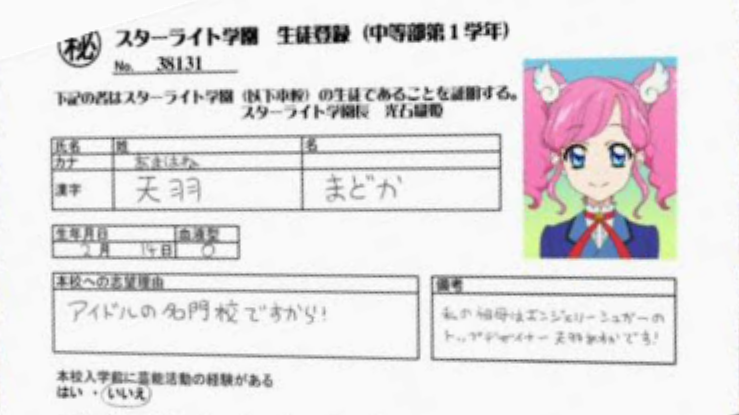 秘 スターライト学園 生徒登録 (中等部第1学年)
No. 38131
下記の者はスターライト学園(以下本校)の生徒であることを証明する。
スターライト学園長 光石織姫
氏名 姓 名
カナ あまはね
漢字 天羽 まどか
生年月日 血液型
2月 14日 O
本校への志望理由
アイドルの名門校ですから!
備考
私の祖母はエンジェリーシュガーの
トップデザイナー 天羽あすかです!
本校入学前に芸能活動の経験がある
はい ・ いいえ